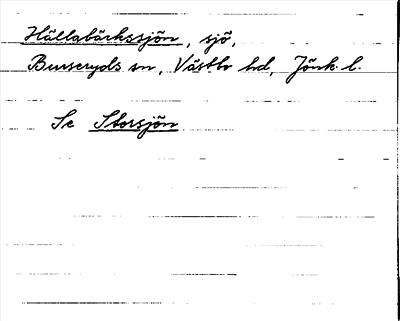 Hällabäckssjön, sjö,
Burseryds sn, Västbo hd, Jönk. l.
Se Storsjön